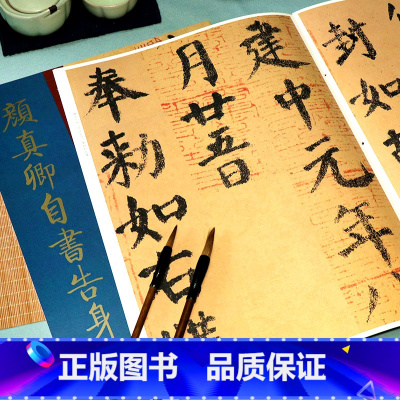 顔真卿自書告身
封如
建中元年八
月廿五日
奉勅如右
正版图书 品质保证